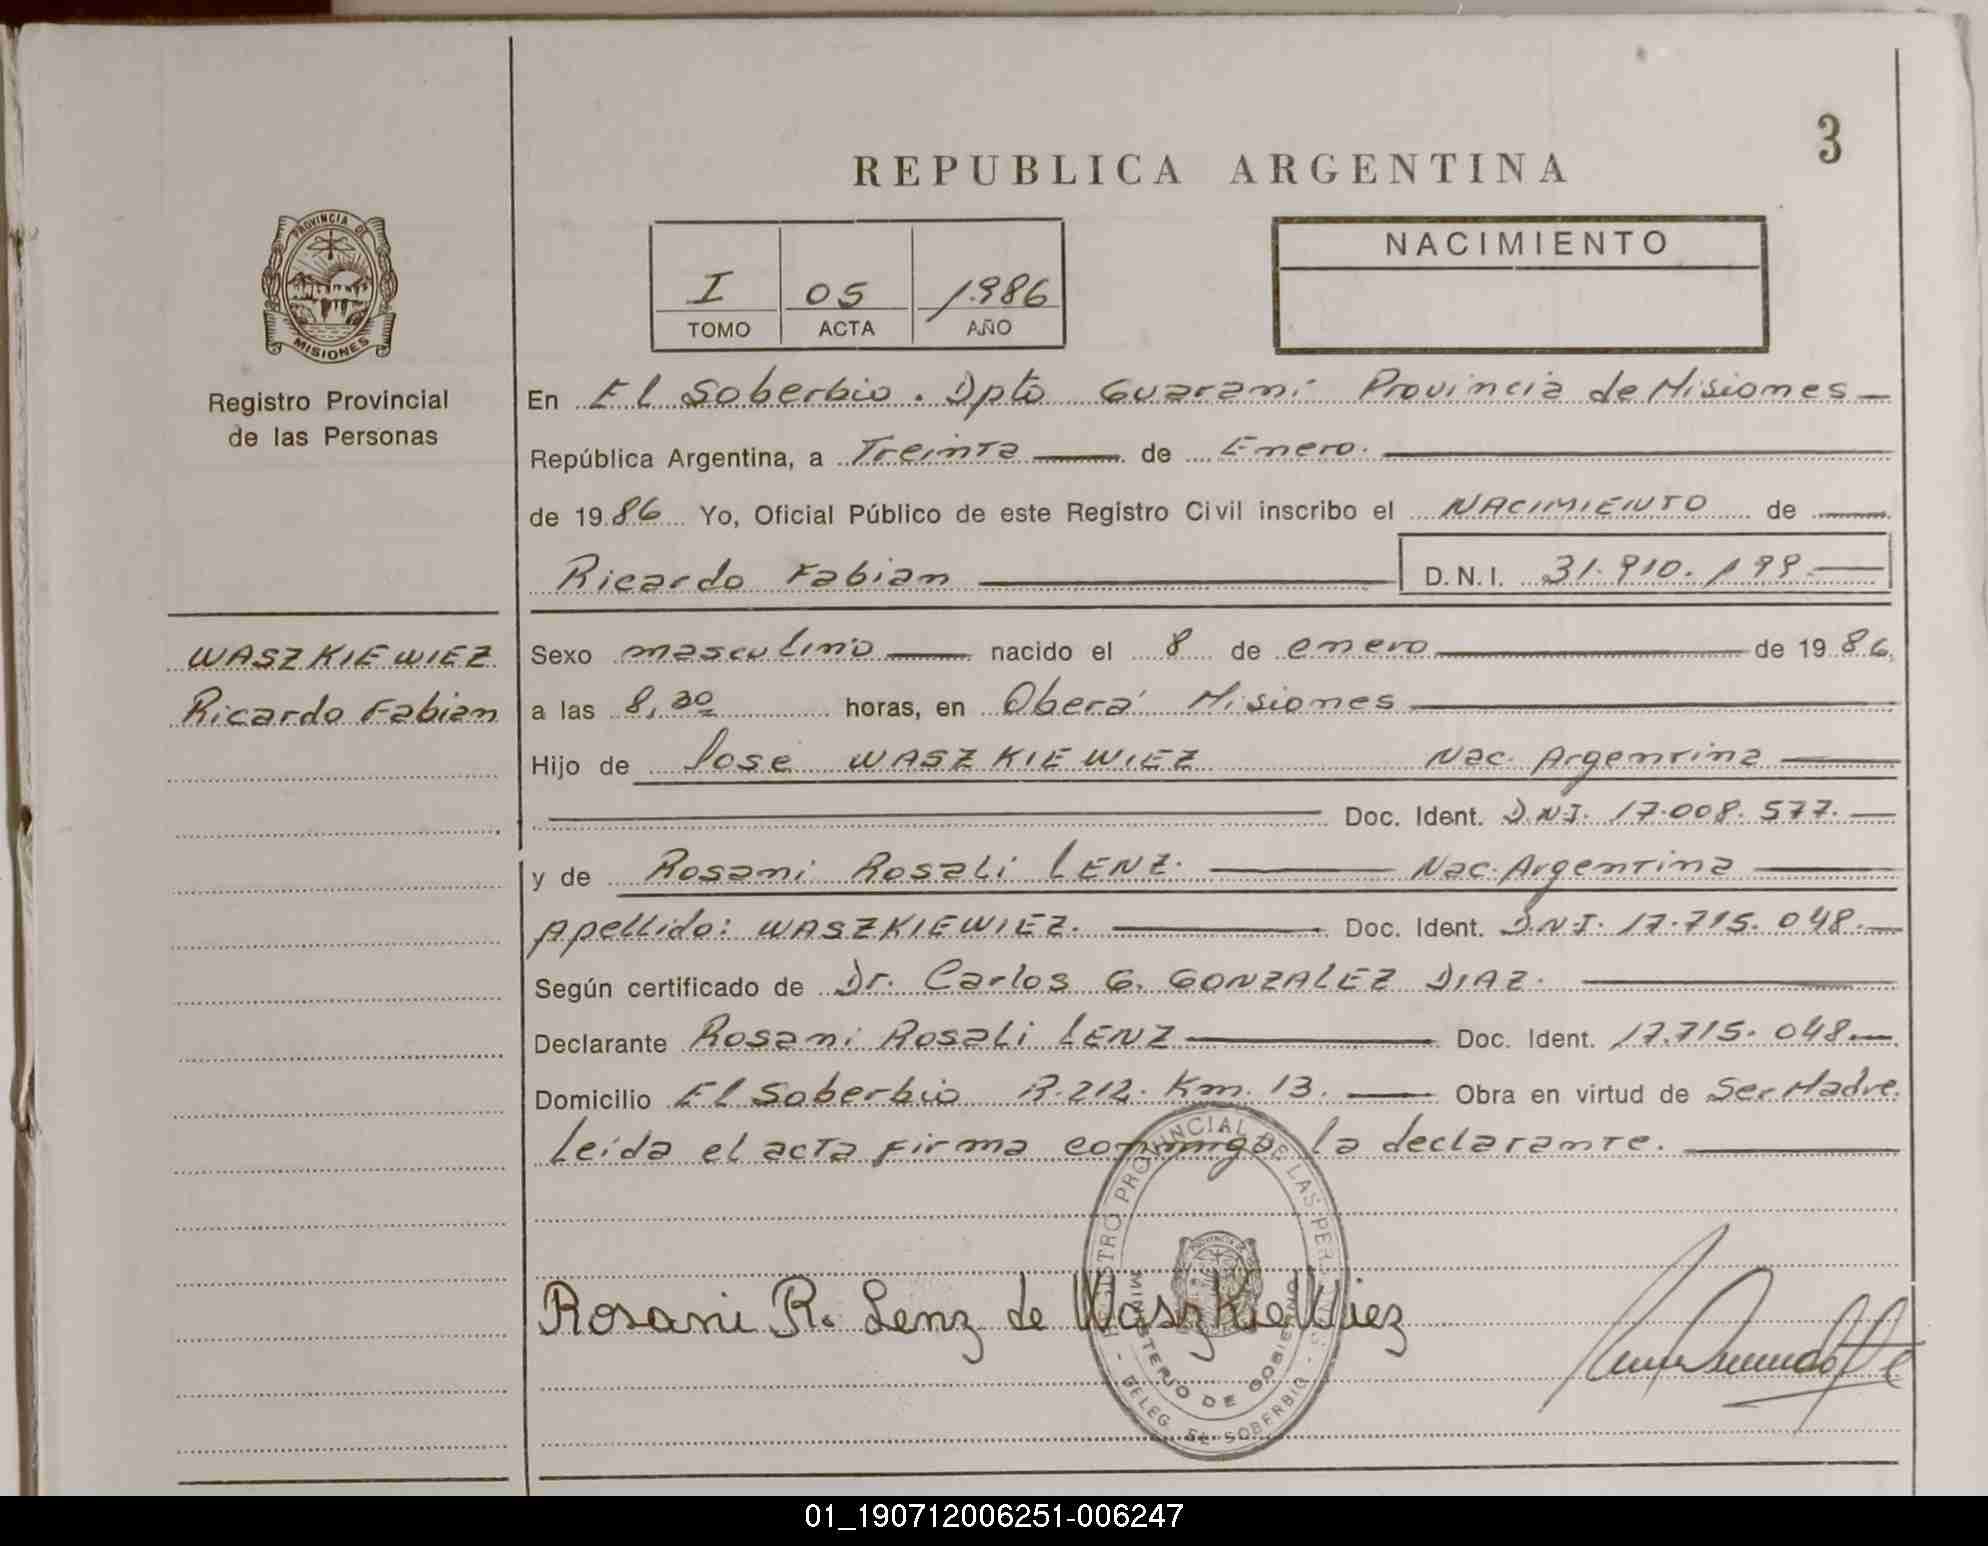 3
REPUBLICA ARGENTINA
PROVINCIA DE
MISIONES
Registro Provincial
de las Personas
I 05 1986
TOMO ACTA AÑO
NACIMIENTO
En El Soberbio. Dpto Guarani Provincia de Misiones
República Argentina, a Treinta de Enero.
de 1986 Yo, Oficial Público de este Registro Civil inscribo el NACIMIENTO de
Ricardo Fabian D.N.I. 31.910.199.
WASZKIEWIEZ
Ricardo Fabian
Sexo masculino nacido el 8 de enero de 1986,
a las 8,30 horas, en Oberá Misiones
Hijo de José WASZKIEWIEZ Nac. Argentina
Doc. Ident. D.N.I. 17.008.577.
y de Rosani Rosali LENZ. Nac. Argentina
Apellido: WASZKIEWIEZ. Doc. Ident. D.N.I. 17.715.048.
Según certificado de Dr. Carlos G. GONZALEZ DIAZ.
Declarante Rosani Rosali LENZ Doc. Ident. 17.715.048
Domicilio El Soberbio R.212. Km. 13. Obra en virtud de Ser Madre.
Leída el acta firma conmigo la declarante.
REGISTRO PROVINCIAL DE LAS PERSONAS
MINISTERIO DE GOBIERNO
- DELEG. EL SOBERBIO -
Rosani R. Lenz de WaszKieWiez
01_190712006251-006247